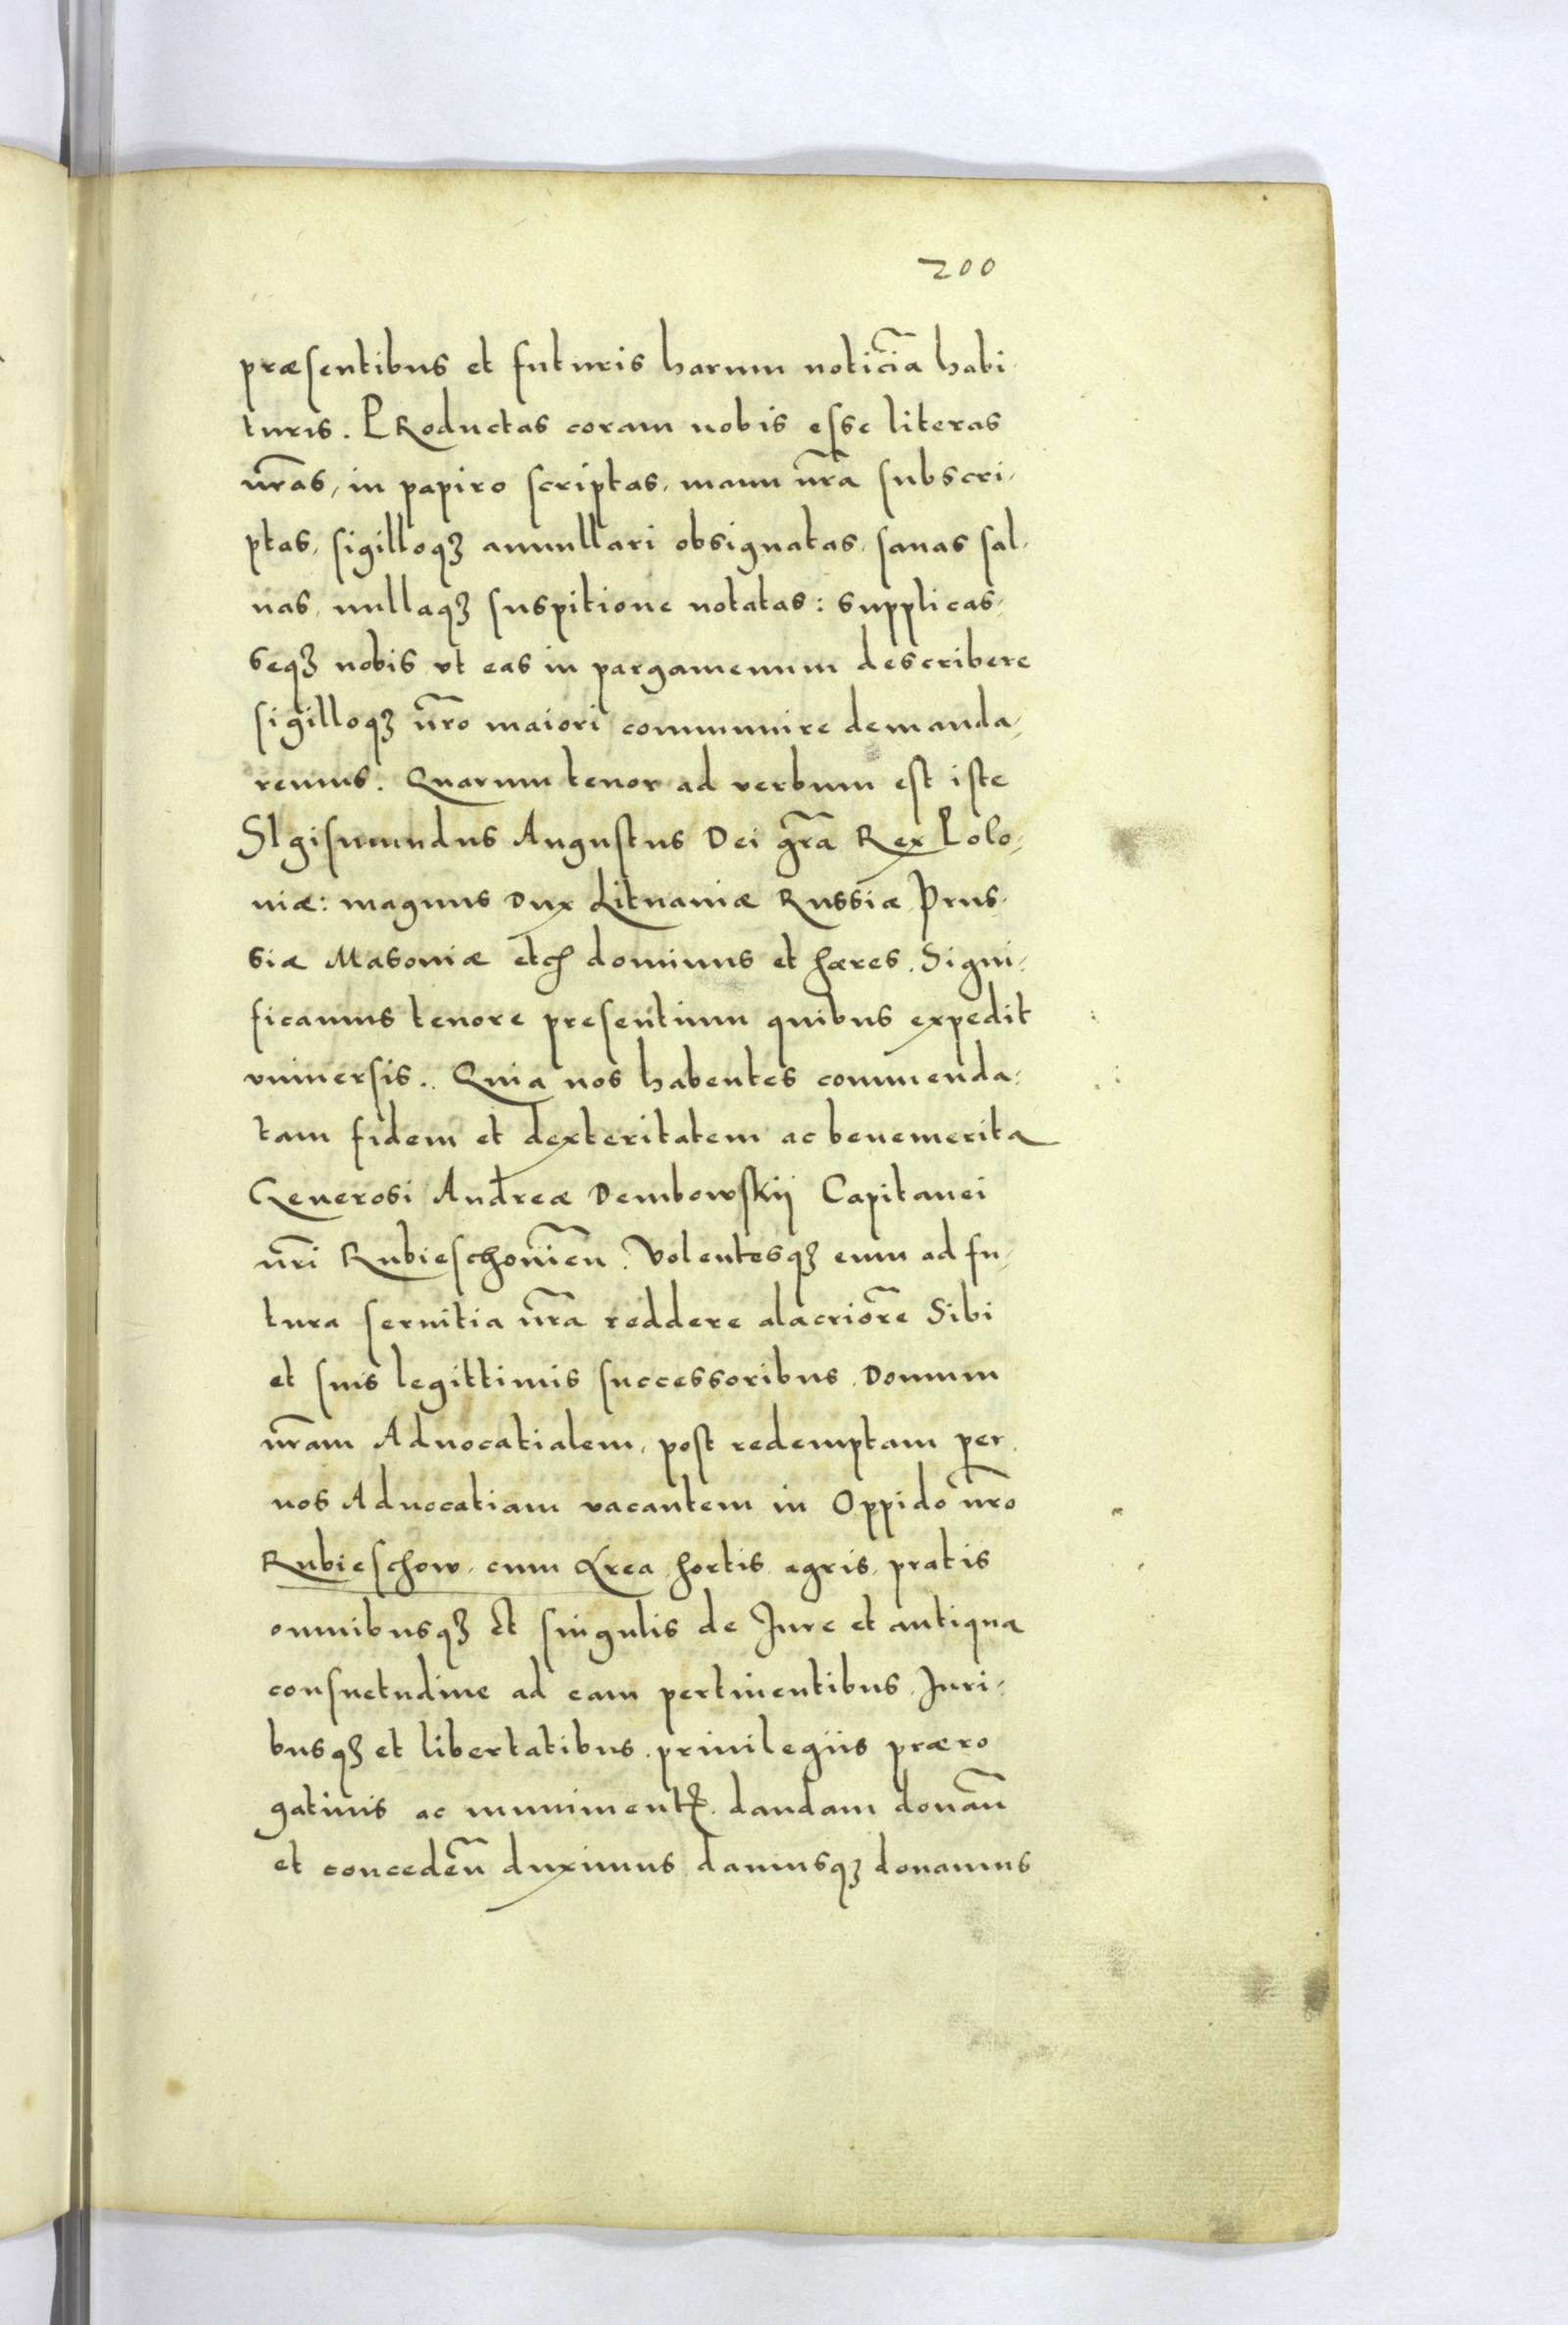 200
præsentibus et futuris harum noticiã habi
turis. PRoductas coram nobis esse literas
nr̃as, in papiro scriptas, manu nr̃a subscri,
ptas, sigilloqꝫ annullari obsignatas, sanas sal,
uas, nullaqꝫ suspitione notatas: supplicas,
seqꝫ nobis vt eas in pargamenum describere
sigilloqꝫ nr̃o maiori communire demanda,
remus. Quarum tenor ad verbum est iste
SIgismundus Augustus Dei gr̃a Rex Polo,
niæ: magnus Dux Lituaniæ Russiæ Prus,
siæ Masoniæ etcꝭ dominus et hæres. Signi,
ficamus tenore presentium quibus expedit
vniuersis. Quia nos habentes commenda,
tam fidem et dexteritatem ac benemerita
Generosi Andreæ Dembowskij Capitanei
nr̃i Rubieschouien̄. Volentesqꝫ eum ad fu,
tura seruitia nr̃a reddere alacriorẽ Sibi
et suis legittimis successoribus. Domum
nr̃am Aduocatialem, post redemptam per
nos Aduocatiam vacantem in Oppido nr̃o
Rubieschow, cum Area, hortis, agris, pratis
omnibusqꝫ et singulis de Jure et antiqua
consuetudine ad eam pertinentibus. Juri,
busqꝫ et libertatibus, priuilegiis prero
gatiuis ac munimentꝭ, dandam donañ
et conceden̄ duximus damusqꝫ donamus